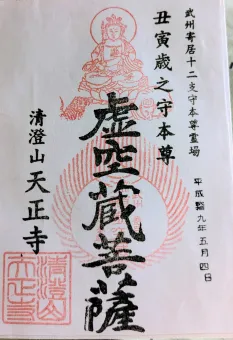 武州寄居十二支守本尊霊場
丑寅歳之守本尊
虚空蔵菩薩
平成廿九年五月四日
清澄山 天正寺
清澄山
天正寺